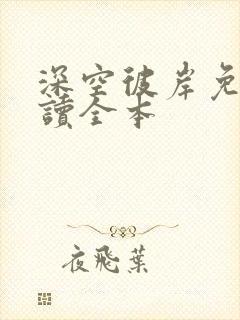 深空彼岸免
讀全本
夜飛葉